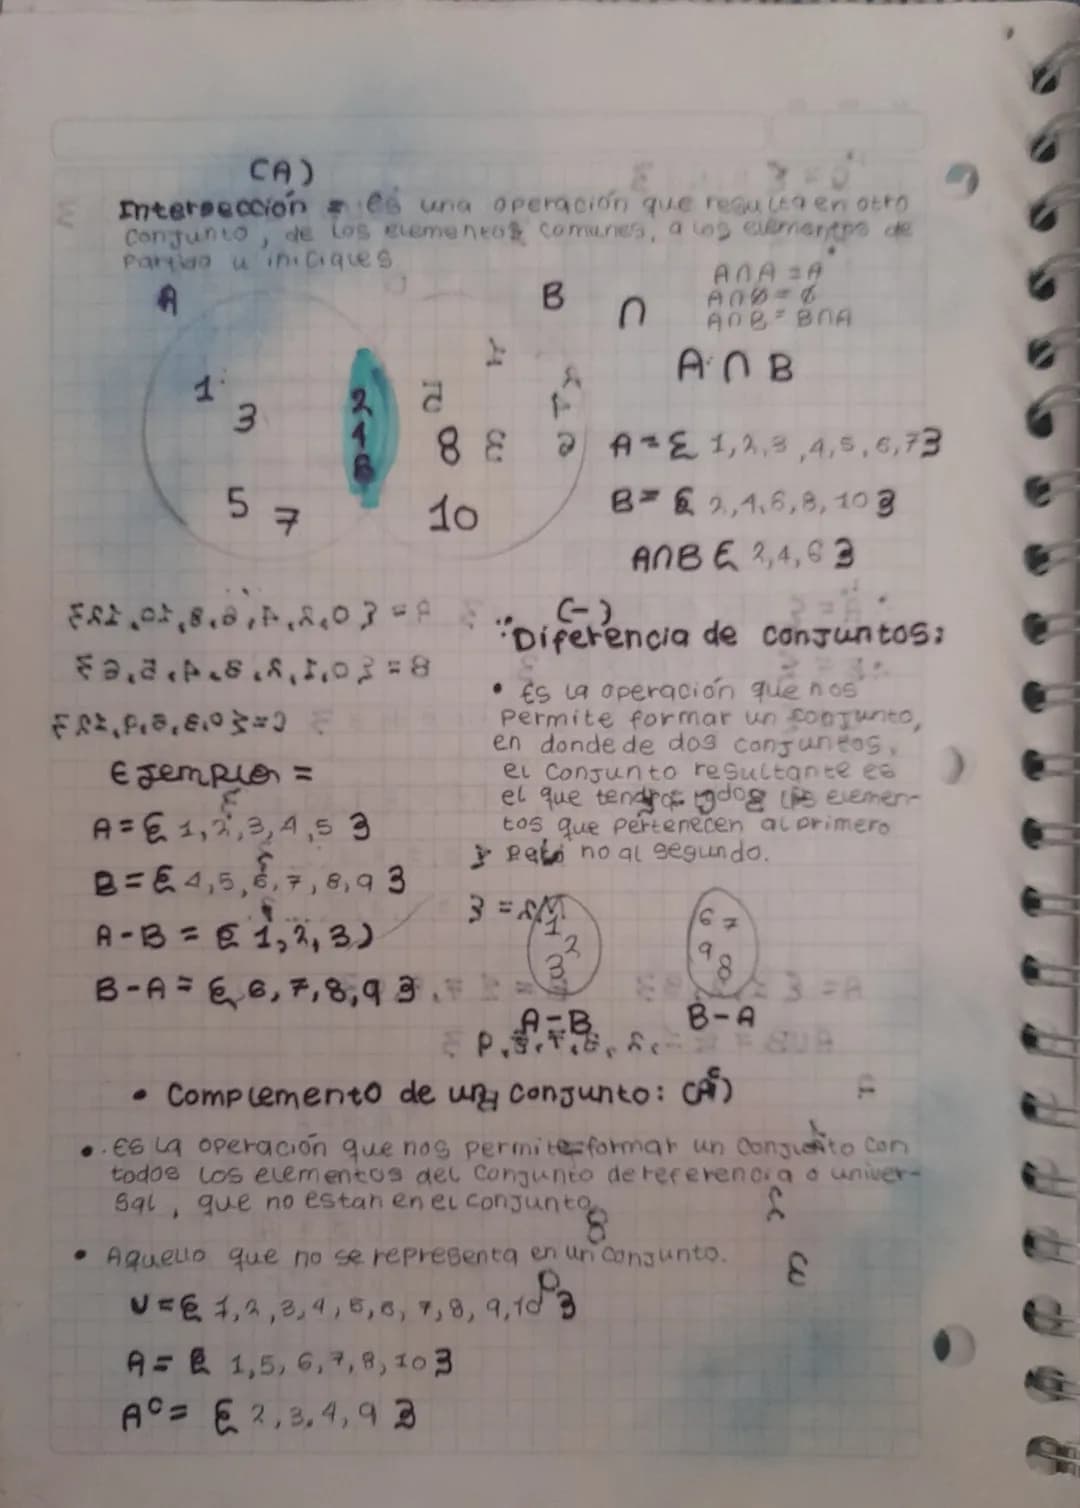 (A)
Intersección = es una operación que resulta en otro
conjunto, de los elementos comunes, a los elementos de
partida u iniciales
A
B
∩
A∩A = A
A∩Ø = Ø
A∩B = B∩A
A ∩ B
1
3
5
7
2
4
6
8
10
A = { 1,2,3,4,5,6,7}
B = { 2,4,6,8,10}
A∩B { 2,4,6}
(-)
Diferencia de conjuntos:
• Es la operación que nos
permite formar un conjunto,
en donde de dos conjuntos,
el conjunto resultante es
el que tendrá todos los elemen-
tos que pertenecen al primero
pero no al segundo.
Ejemplo =
A = { 1,2,3,4,5}
B = { 4,5,6,7,8,9}
A-B = { 1,2,3)
B-A = { 6,7,8,9}
1
2
3
A-B
6 7
9
8
B-A
• Complemento de un conjunto: (Aᶜ)
• Es la operación que nos permite formar un conjunto con
todos los elementos del conjunto de referencia o univer-
sal, que no estan en el conjunto
• Aquello que no se representa en un conjunto.
U = { 1,2,3,4,5,6,7,8,9,10}
A = { 1,5,6,7,8,10}
Aᶜ = { 2,3,4,9}